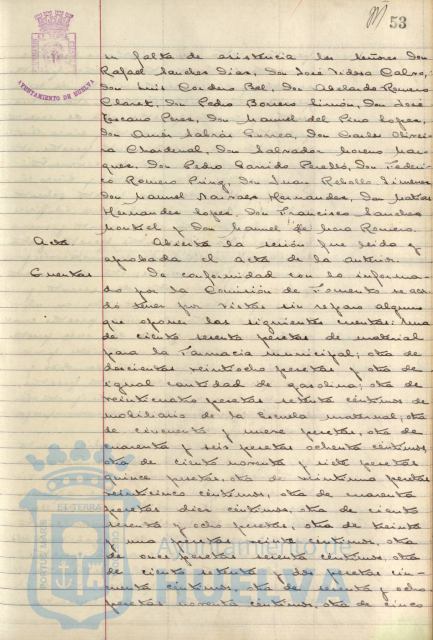 53
AYUNTAMIENTO DE HUELVA
su falta de asistencia los señores don
Rafael Sanchez Diaz, don José Tejero Calvo,
don Luis Cordero Bel, don Abelardo Romero
Claret, don Pedro Borrero Limón, don José
Toscano Perez, don Manuel del Pino Lopez,
don Amós Sabrás Gurrea, don Carlos Oliveira
Chardenal, don Salvador Moreno Marquez,
don Pedro Garrido Perelló, don Federico
Romero Pring, don Juan Rebollo Jimenez
don Manuel Narvaez Hernandez, don Matias
Hernandez Lopez, don Francisco Sanchez
Montiel y don Manuel de Mora Romero.
Acta Abierta la sesión fue leida y
aprobada el acta de la anterior.
Cuentas De conformidad con lo informado
por la Comisión de Fomento se acordó
tener por vistas sin reparo alguno
que oponer las siguientes cuentas: una
de ciento sesenta pesetas de material
para la Farmacia municipal; otra de
doscientas veintiocho pesetas y otra de
igual cantidad de gasolina; otra de
veinticuatro pesetas setenta céntimos de
mobiliario de la Escuela maternal, otra
de cincuenta y nueve pesetas, otra de
cuarenta y seis pesetas ochenta céntimos,
otra de ciento noventa y siete pesetas
quince pesetas, otra de veintiuna pesetas
veinticinco céntimos, otra de noventa
pesetas diez céntimos, otra de ciento
sesenta y ocho pesetas, otra de treinta
y una pesetas veinte céntimos, otra
de once pesetas sesenta céntimos, otra
de ciento setenta y dos pesetas cincuenta
céntimos, otra de sesenta y ocho
pesetas noventa céntimos, otra de cinco
Ayuntamiento de
HUELVA